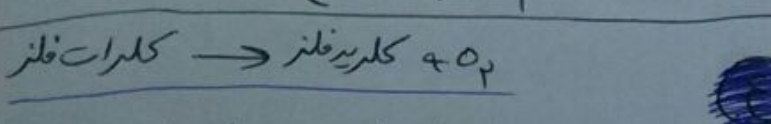 کلرات فلز → کلرید فلز + O₂